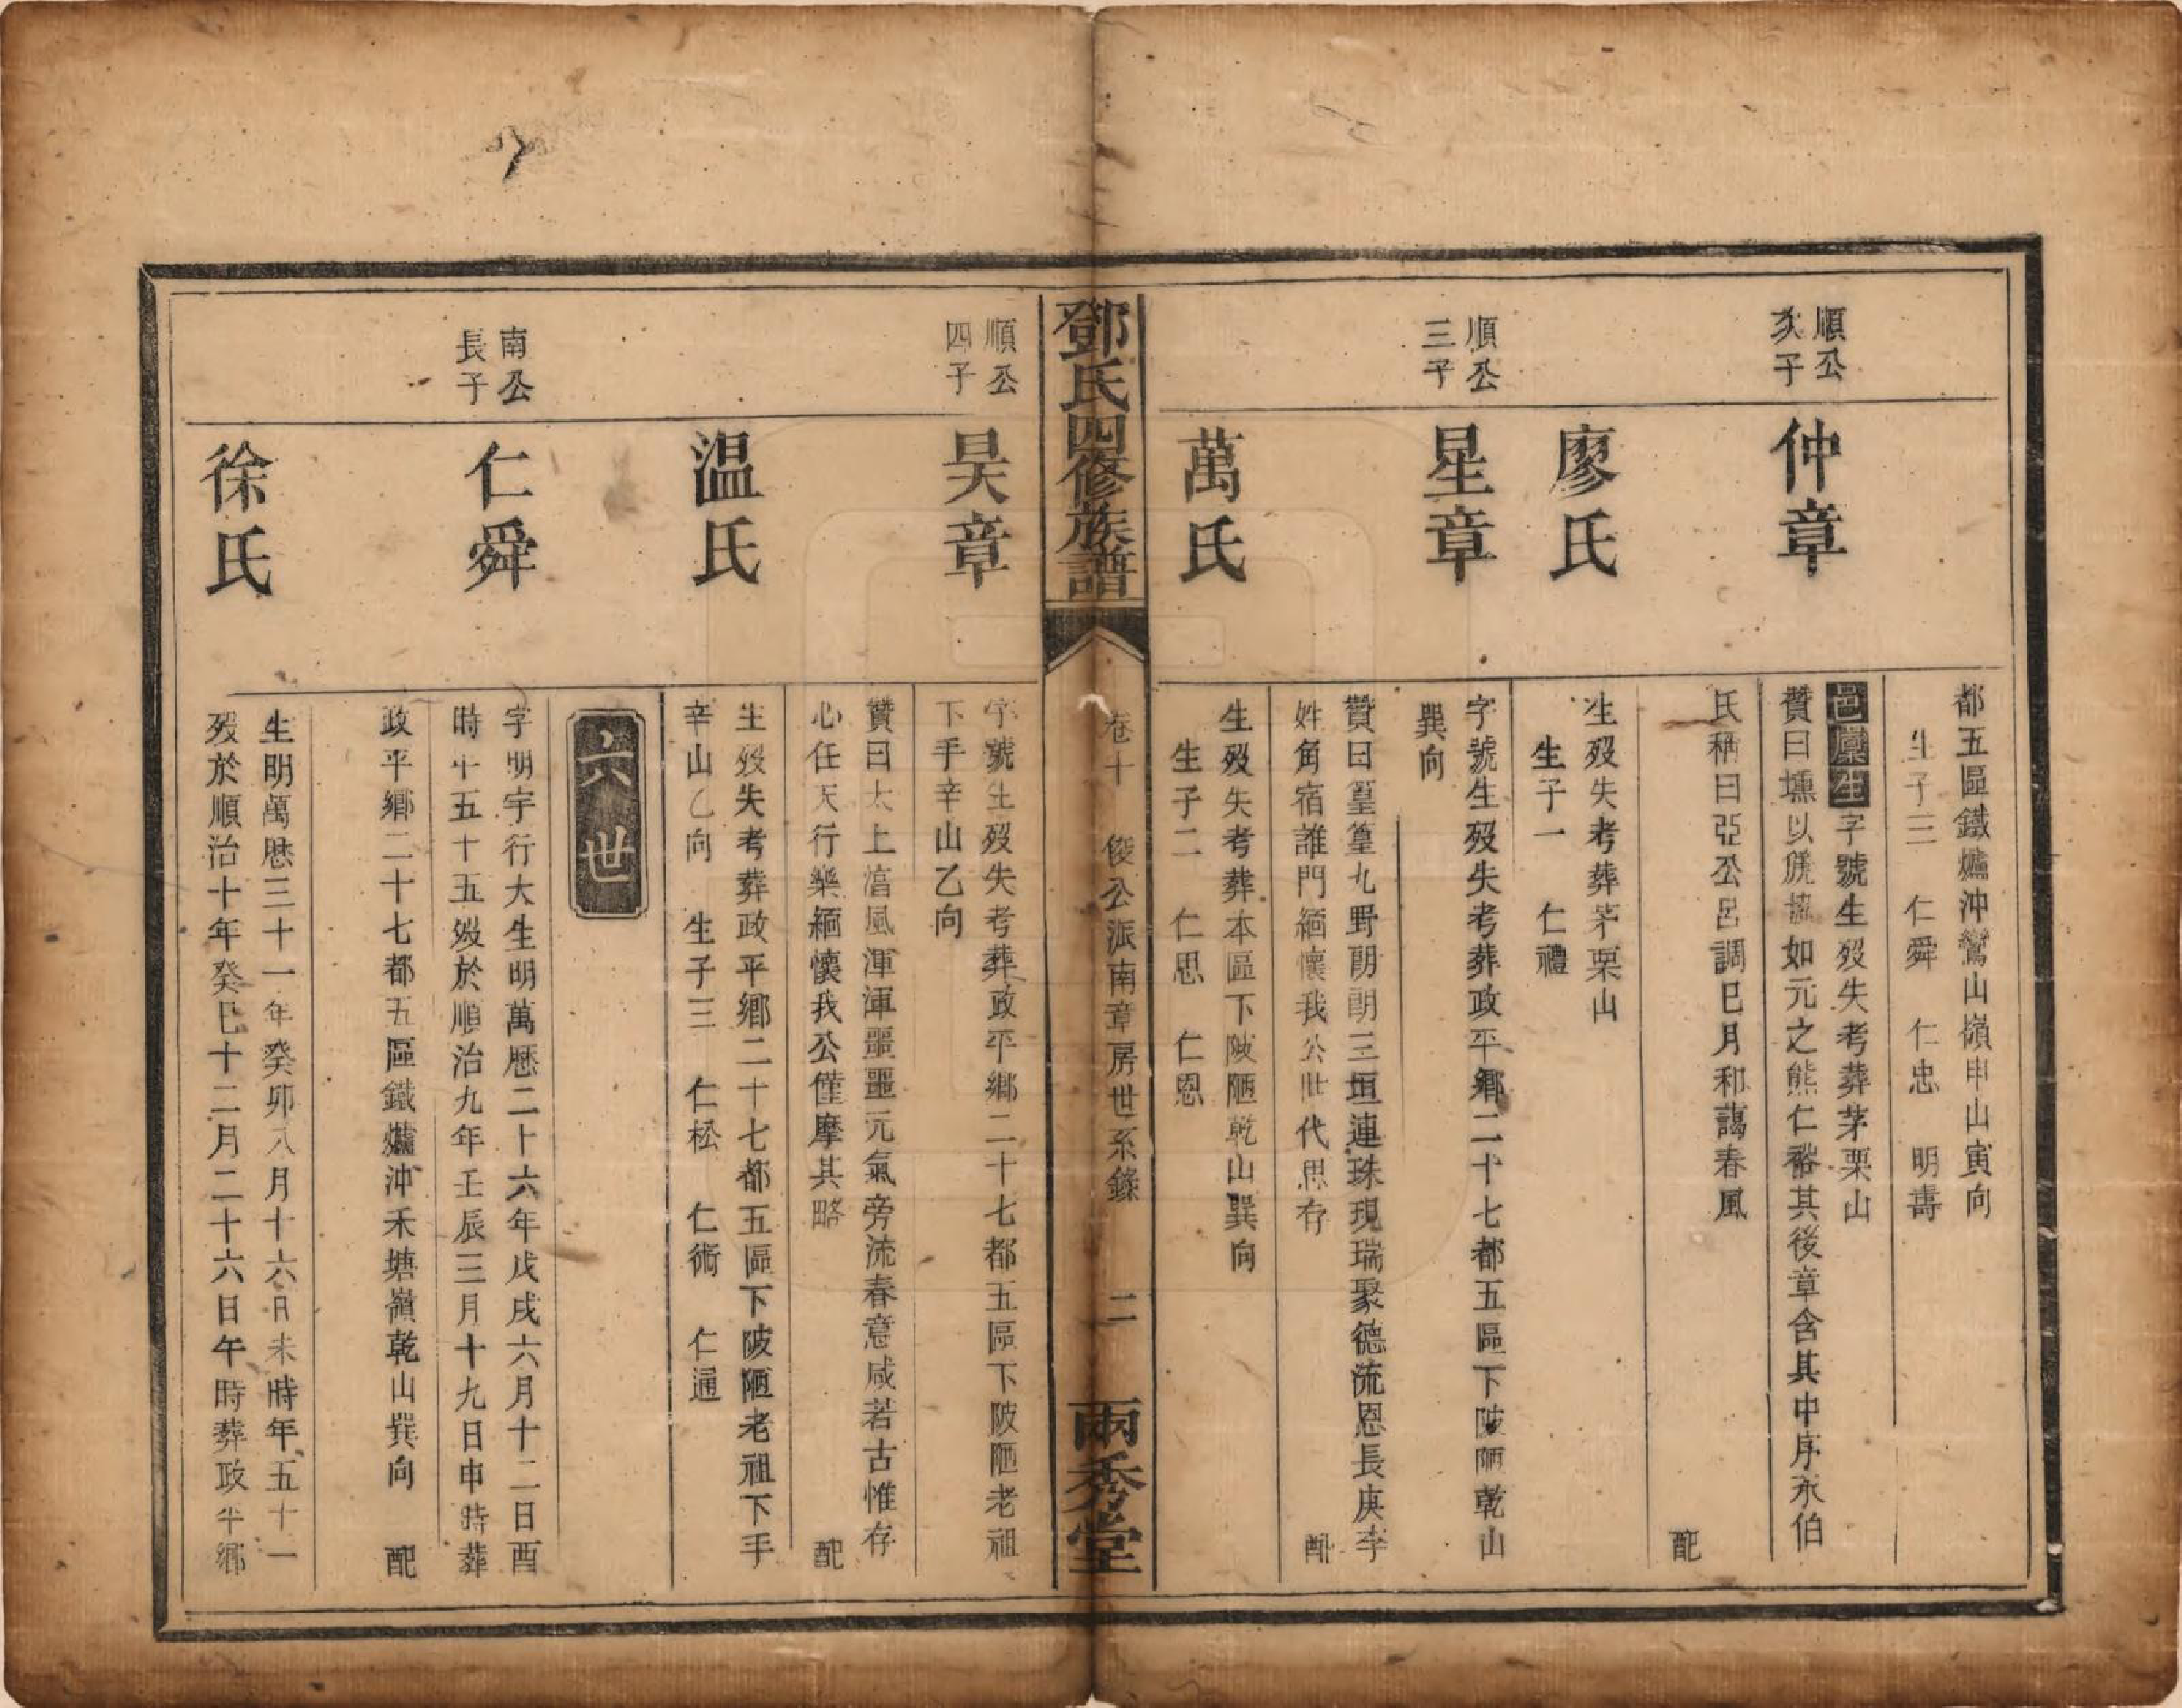 都五區鐵爐沖鸞山嶺申山寅向
生子三　仁舜　仁忠　明壽
順公
次子
仲章
邑廩生字號生歿失考葬茅栗山
贊曰壎以篪協如元之熊仁裕其後章含其中序永伯
氏稱曰亞公呂調巳月和藹春風
配
廖氏
生歿失考葬茅栗山
生子一　仁禮
順公
三子
星章
字號生歿失考葬政平鄉二十七都五區下陂陋乾山
巽向
贊曰篁篁九野朗朗三垣連珠現瑞聚德流恩長庚李
姓角宿誰門緬懷我公世代思存
配
萬氏
生歿失考葬本區下陂陋乾山巽向
生子二　仁思　仁恩
鄧氏四修族譜
卷十　俊公派南章房世系錄　二
兩秀堂
順公
四子
昊章
字號生歿失考葬政平鄉二十七都五區下陂陋老祖
下手辛山乙向
贊曰太上湻風渾渾噩噩元氣旁流春意咸若古惟存
心任天行樂緬懷我公僅摩其略
配
温氏
生歿失考葬政平鄉二十七都五區下陂陋老祖下手
辛山乙向　生子三　仁松　仁術　仁通
六世
南公
長子
仁舜
字明宇行大生明萬曆二十六年戊戌六月十二日酉
時年五十五歿於順治九年壬辰三月十九日申時葬
政平鄉二十七都五區鐵爐沖禾塘嶺乾山巽向
配
徐氏
生明萬曆三十一年癸卯八月十六日未時年五十一
歿於順治十年癸巳十二月二十六日午時葬政平鄉